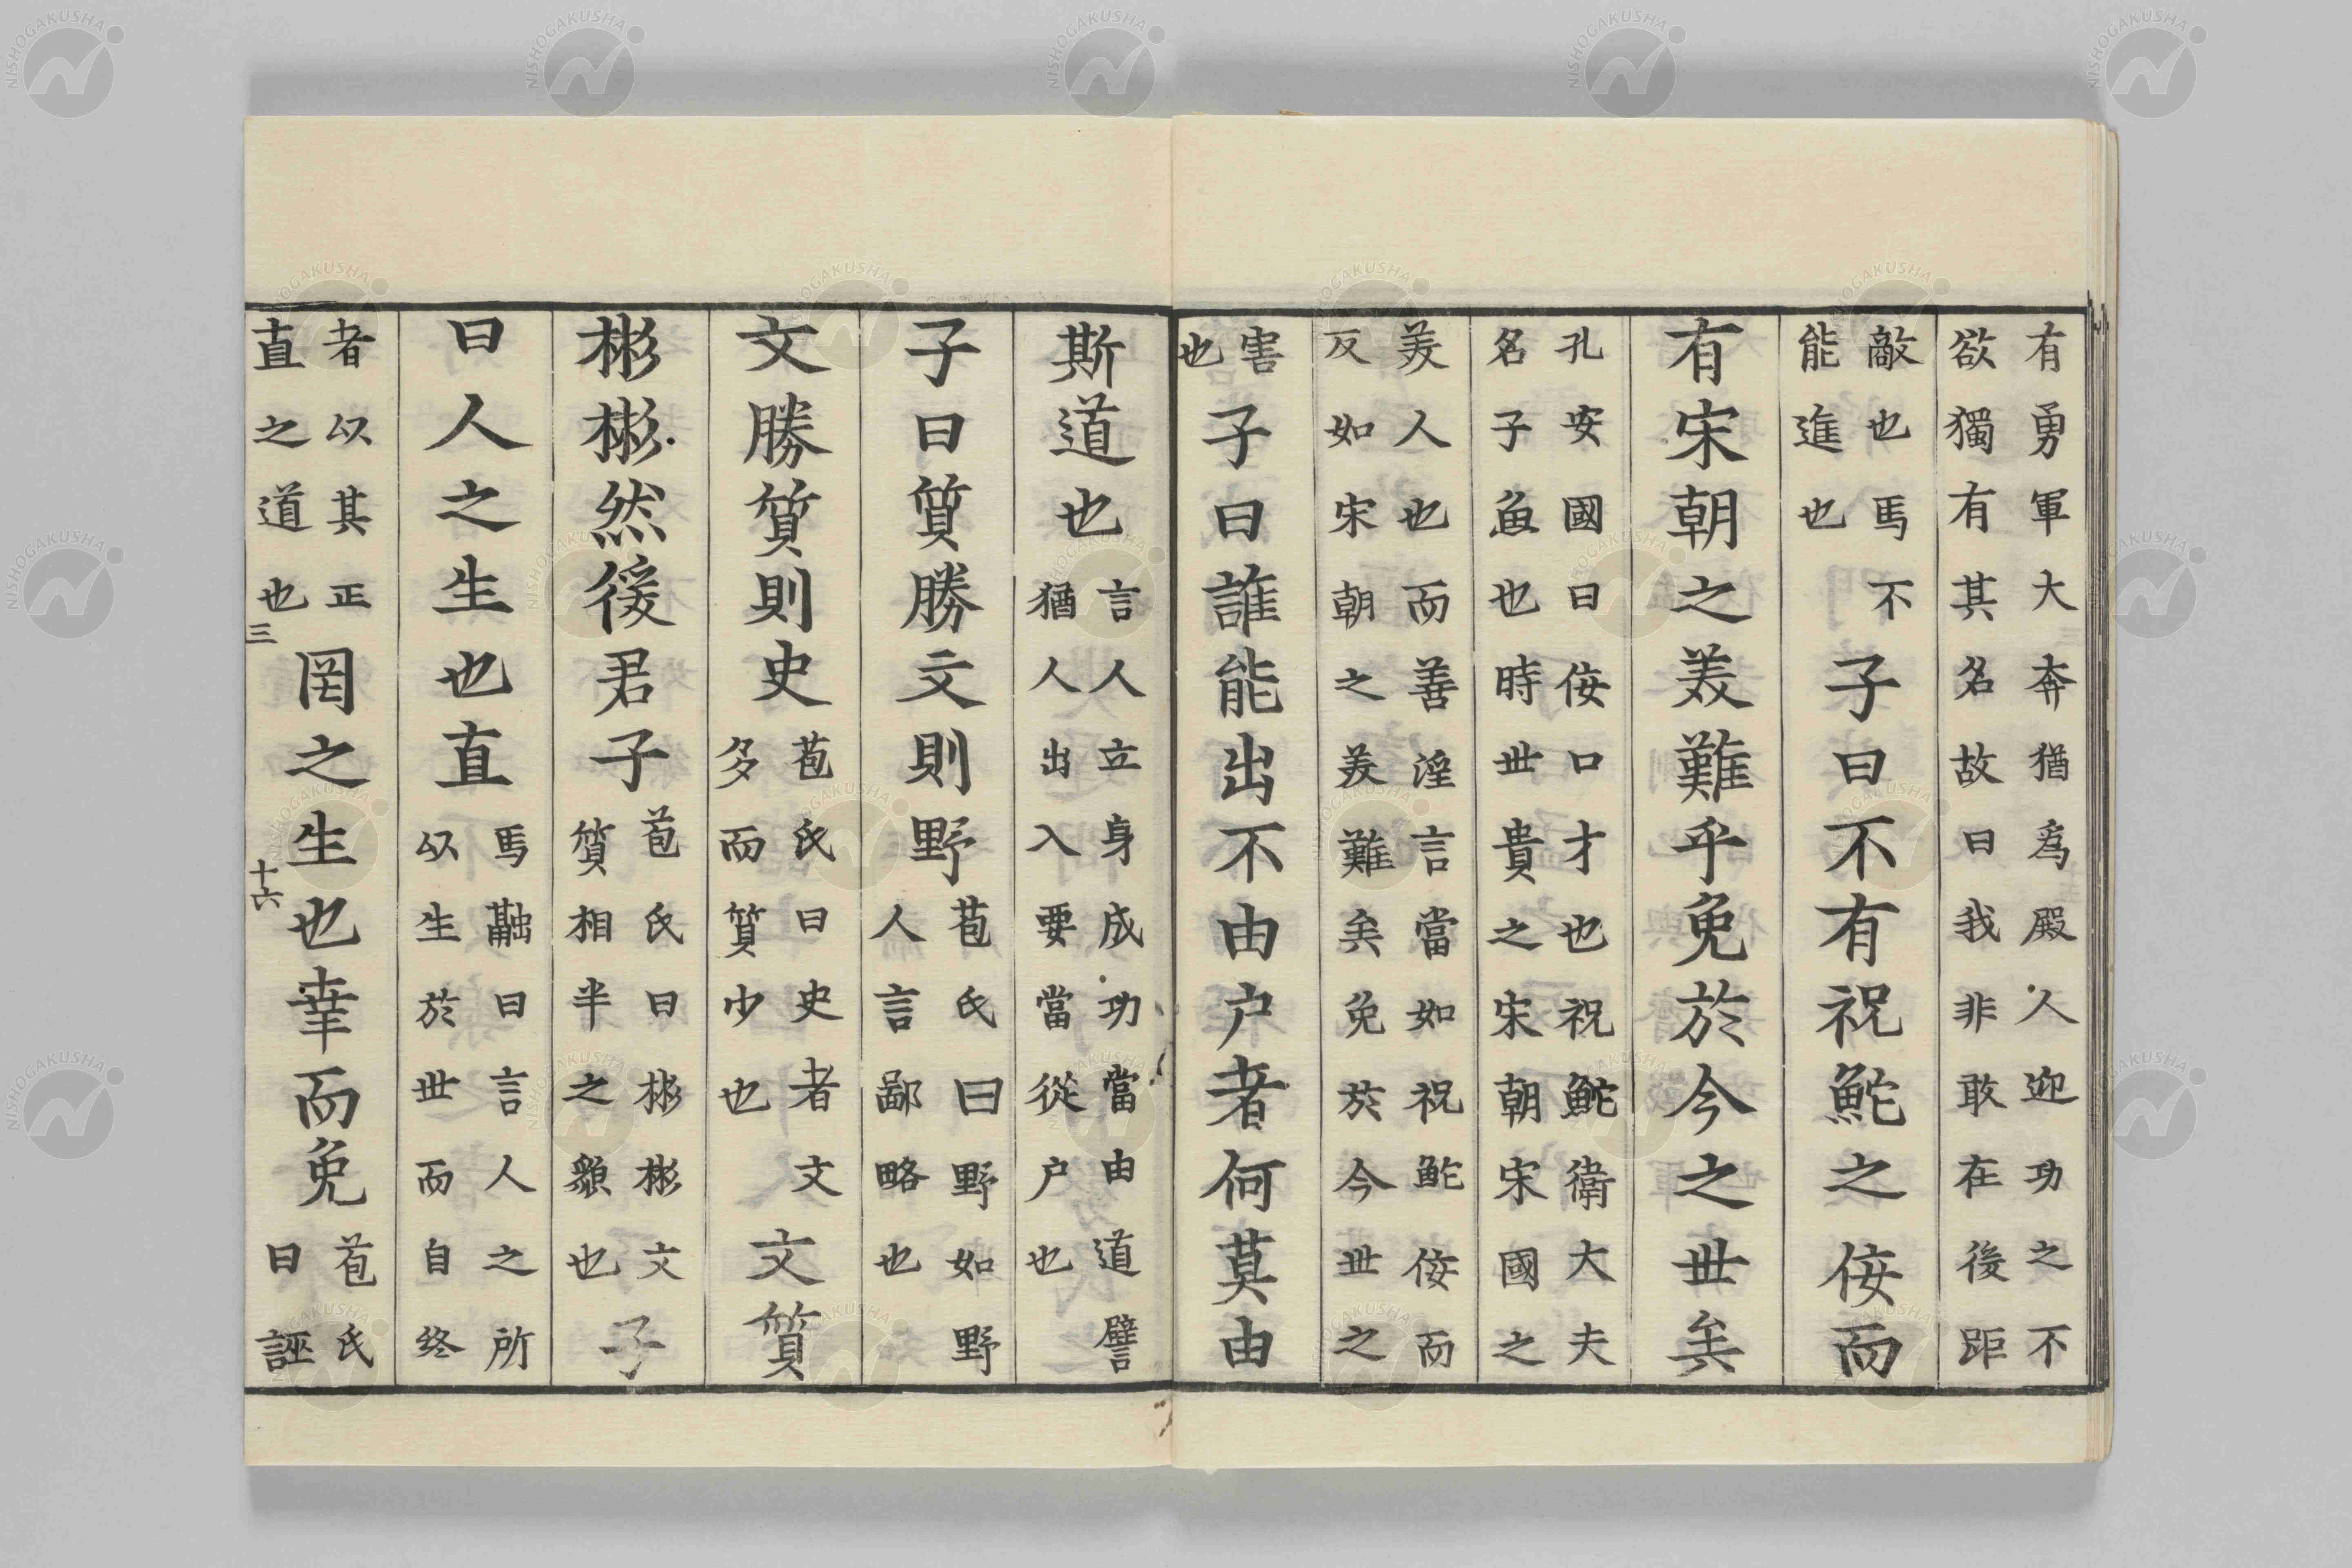 有勇軍大奔猶爲殿人迎功之不
欲獨有其名故曰我非敢在後距
敵也馬不
能進也
子曰不有祝鮀之佞而
有宋朝之美難乎免於今之世矣
孔安國曰佞口才也祝鮀衛大夫
名子魚也時世貴之宋朝宋國之
美人也而善淫言當如祝鮀佞而
反如宋朝之美難矣免於今世之
害
也
子曰誰能出不由户者何莫由
斯道也
言人立身成功當由道譬
猶人出入要當從户也
子曰質勝文則野
苞氏曰野如野
人言鄙略也
文勝質則史
苞氏曰史者文
多而質少也
文質
彬彬然後君子
苞氏曰彬彬文
質相半之貌也
子
曰人之生也直
馬融曰言人之所
以生於世而自終
者以其正
直之道也
罔之生也幸而免
苞氏
曰誣
三
十六
NISHOGAKUSHA